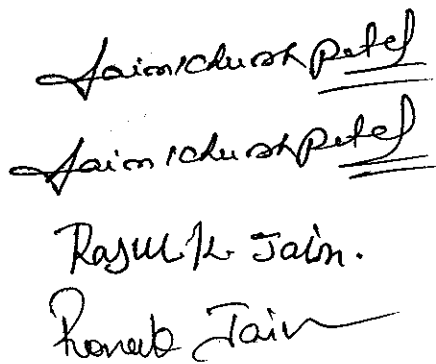 Jainikhushpatel
Jainikhushpatel
Rajul K. Jain.
Ronak Jain